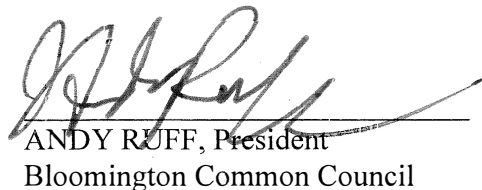 ANDY RUFF, President
Bloomington Common Council